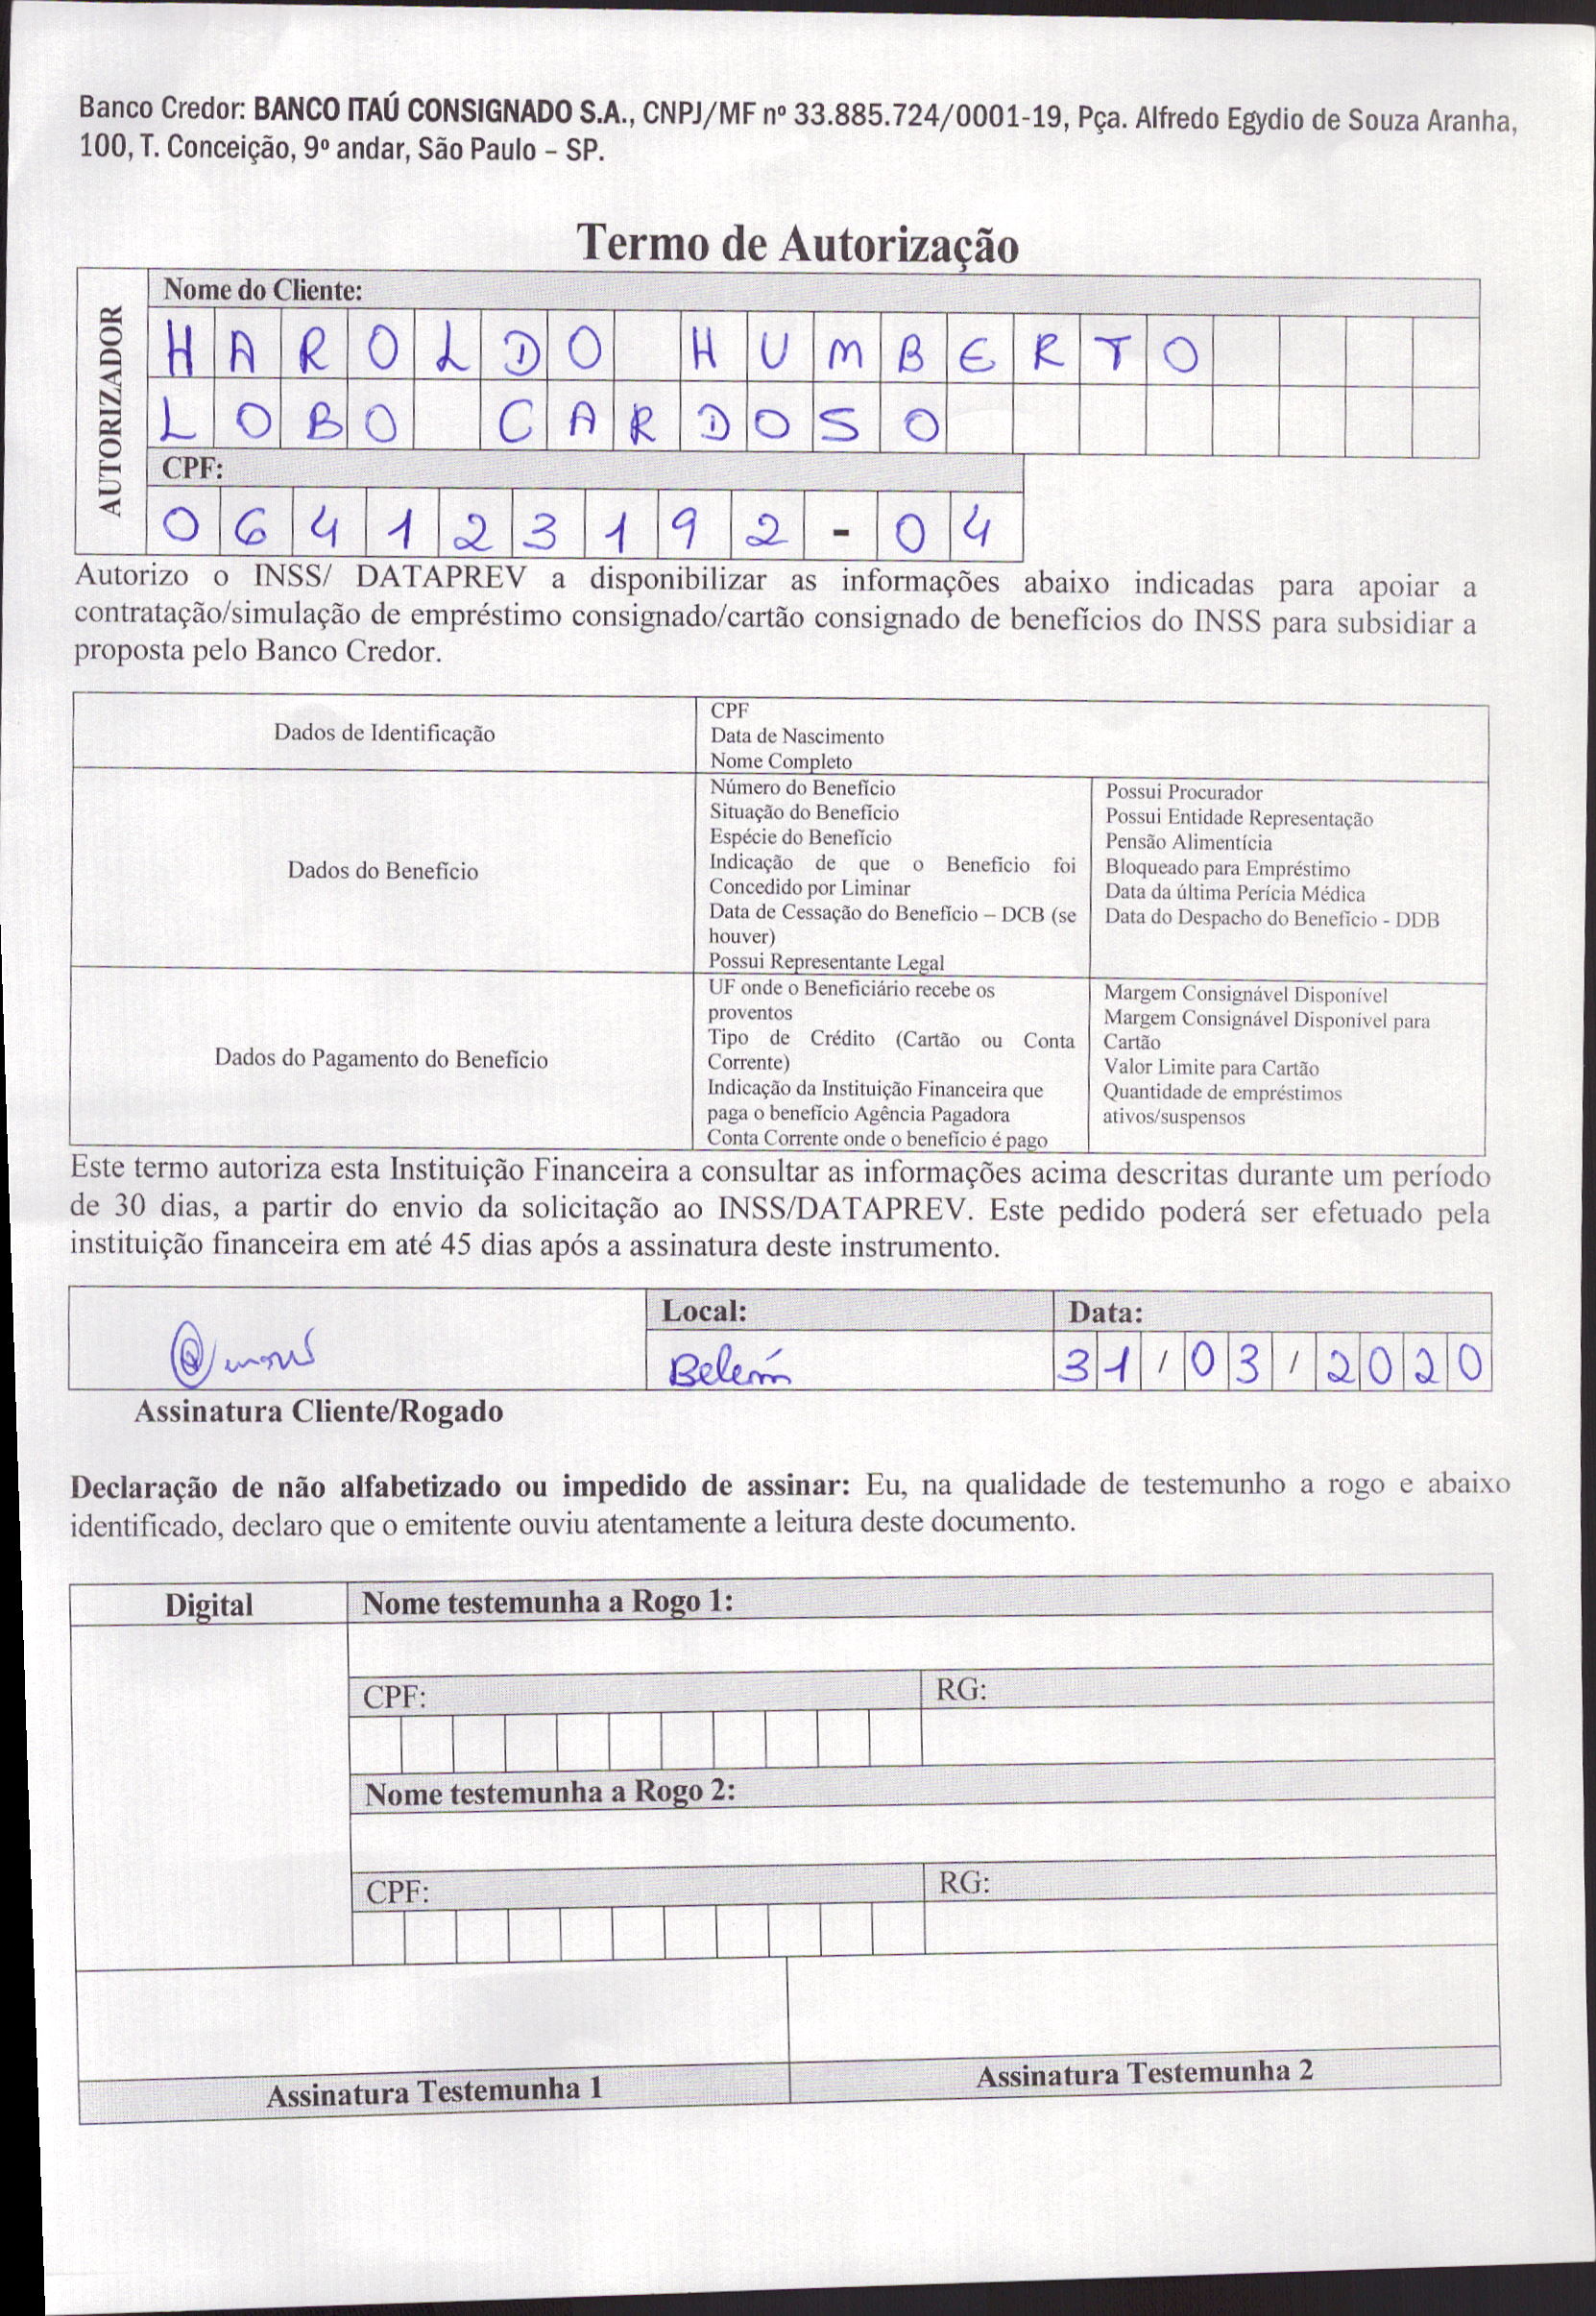 Banco Credor: BANCO ITAÚ CONSIGNADO S.A., CNPJ/MF nº 33.885.724/0001-19, Pça. Alfredo Egydio de Souza Aranha,
100, T. Conceição, 9º andar, São Paulo – SP.
Termo de Autorização
AUTORIZADOR
Nome do Cliente:
HAROLDO HUMBERTO
LOBO CARDOSO
CPF:
064123192-04
Autorizo o INSS/ DATAPREV a disponibilizar as informações abaixo indicadas para apoiar a
contratação/simulação de empréstimo consignado/cartão consignado de benefícios do INSS para subsidiar a
proposta pelo Banco Credor.
Dados de Identificação
CPF
Data de Nascimento
Nome Completo
Dados do Benefício
Número do Benefício
Situação do Benefício
Espécie do Benefício
Indicação de que o Benefício foi
Concedido por Liminar
Data de Cessação do Benefício – DCB (se
houver)
Possui Representante Legal
Possui Procurador
Possui Entidade Representação
Pensão Alimentícia
Bloqueado para Empréstimo
Data da última Perícia Médica
Data do Despacho do Benefício - DDB
Dados do Pagamento do Benefício
UF onde o Beneficiário recebe os
proventos
Tipo de Crédito (Cartão ou Conta
Corrente)
Indicação da Instituição Financeira que
paga o benefício Agência Pagadora
Conta Corrente onde o benefício é pago
Margem Consignável Disponível
Margem Consignável Disponível para
Cartão
Valor Limite para Cartão
Quantidade de empréstimos
ativos/suspensos
Este termo autoriza esta Instituição Financeira a consultar as informações acima descritas durante um período
de 30 dias, a partir do envio da solicitação ao INSS/DATAPREV. Este pedido poderá ser efetuado pela
instituição financeira em até 45 dias após a assinatura deste instrumento.
Local:
Data:
Belém
31/03/2020
Assinatura Cliente/Rogado
Declaração de não alfabetizado ou impedido de assinar: Eu, na qualidade de testemunho a rogo e abaixo
identificado, declaro que o emitente ouviu atentamente a leitura deste documento.
Digital
Nome testemunha a Rogo 1:
CPF:
RG:
Nome testemunha a Rogo 2:
CPF:
RG:
Assinatura Testemunha 1
Assinatura Testemunha 2